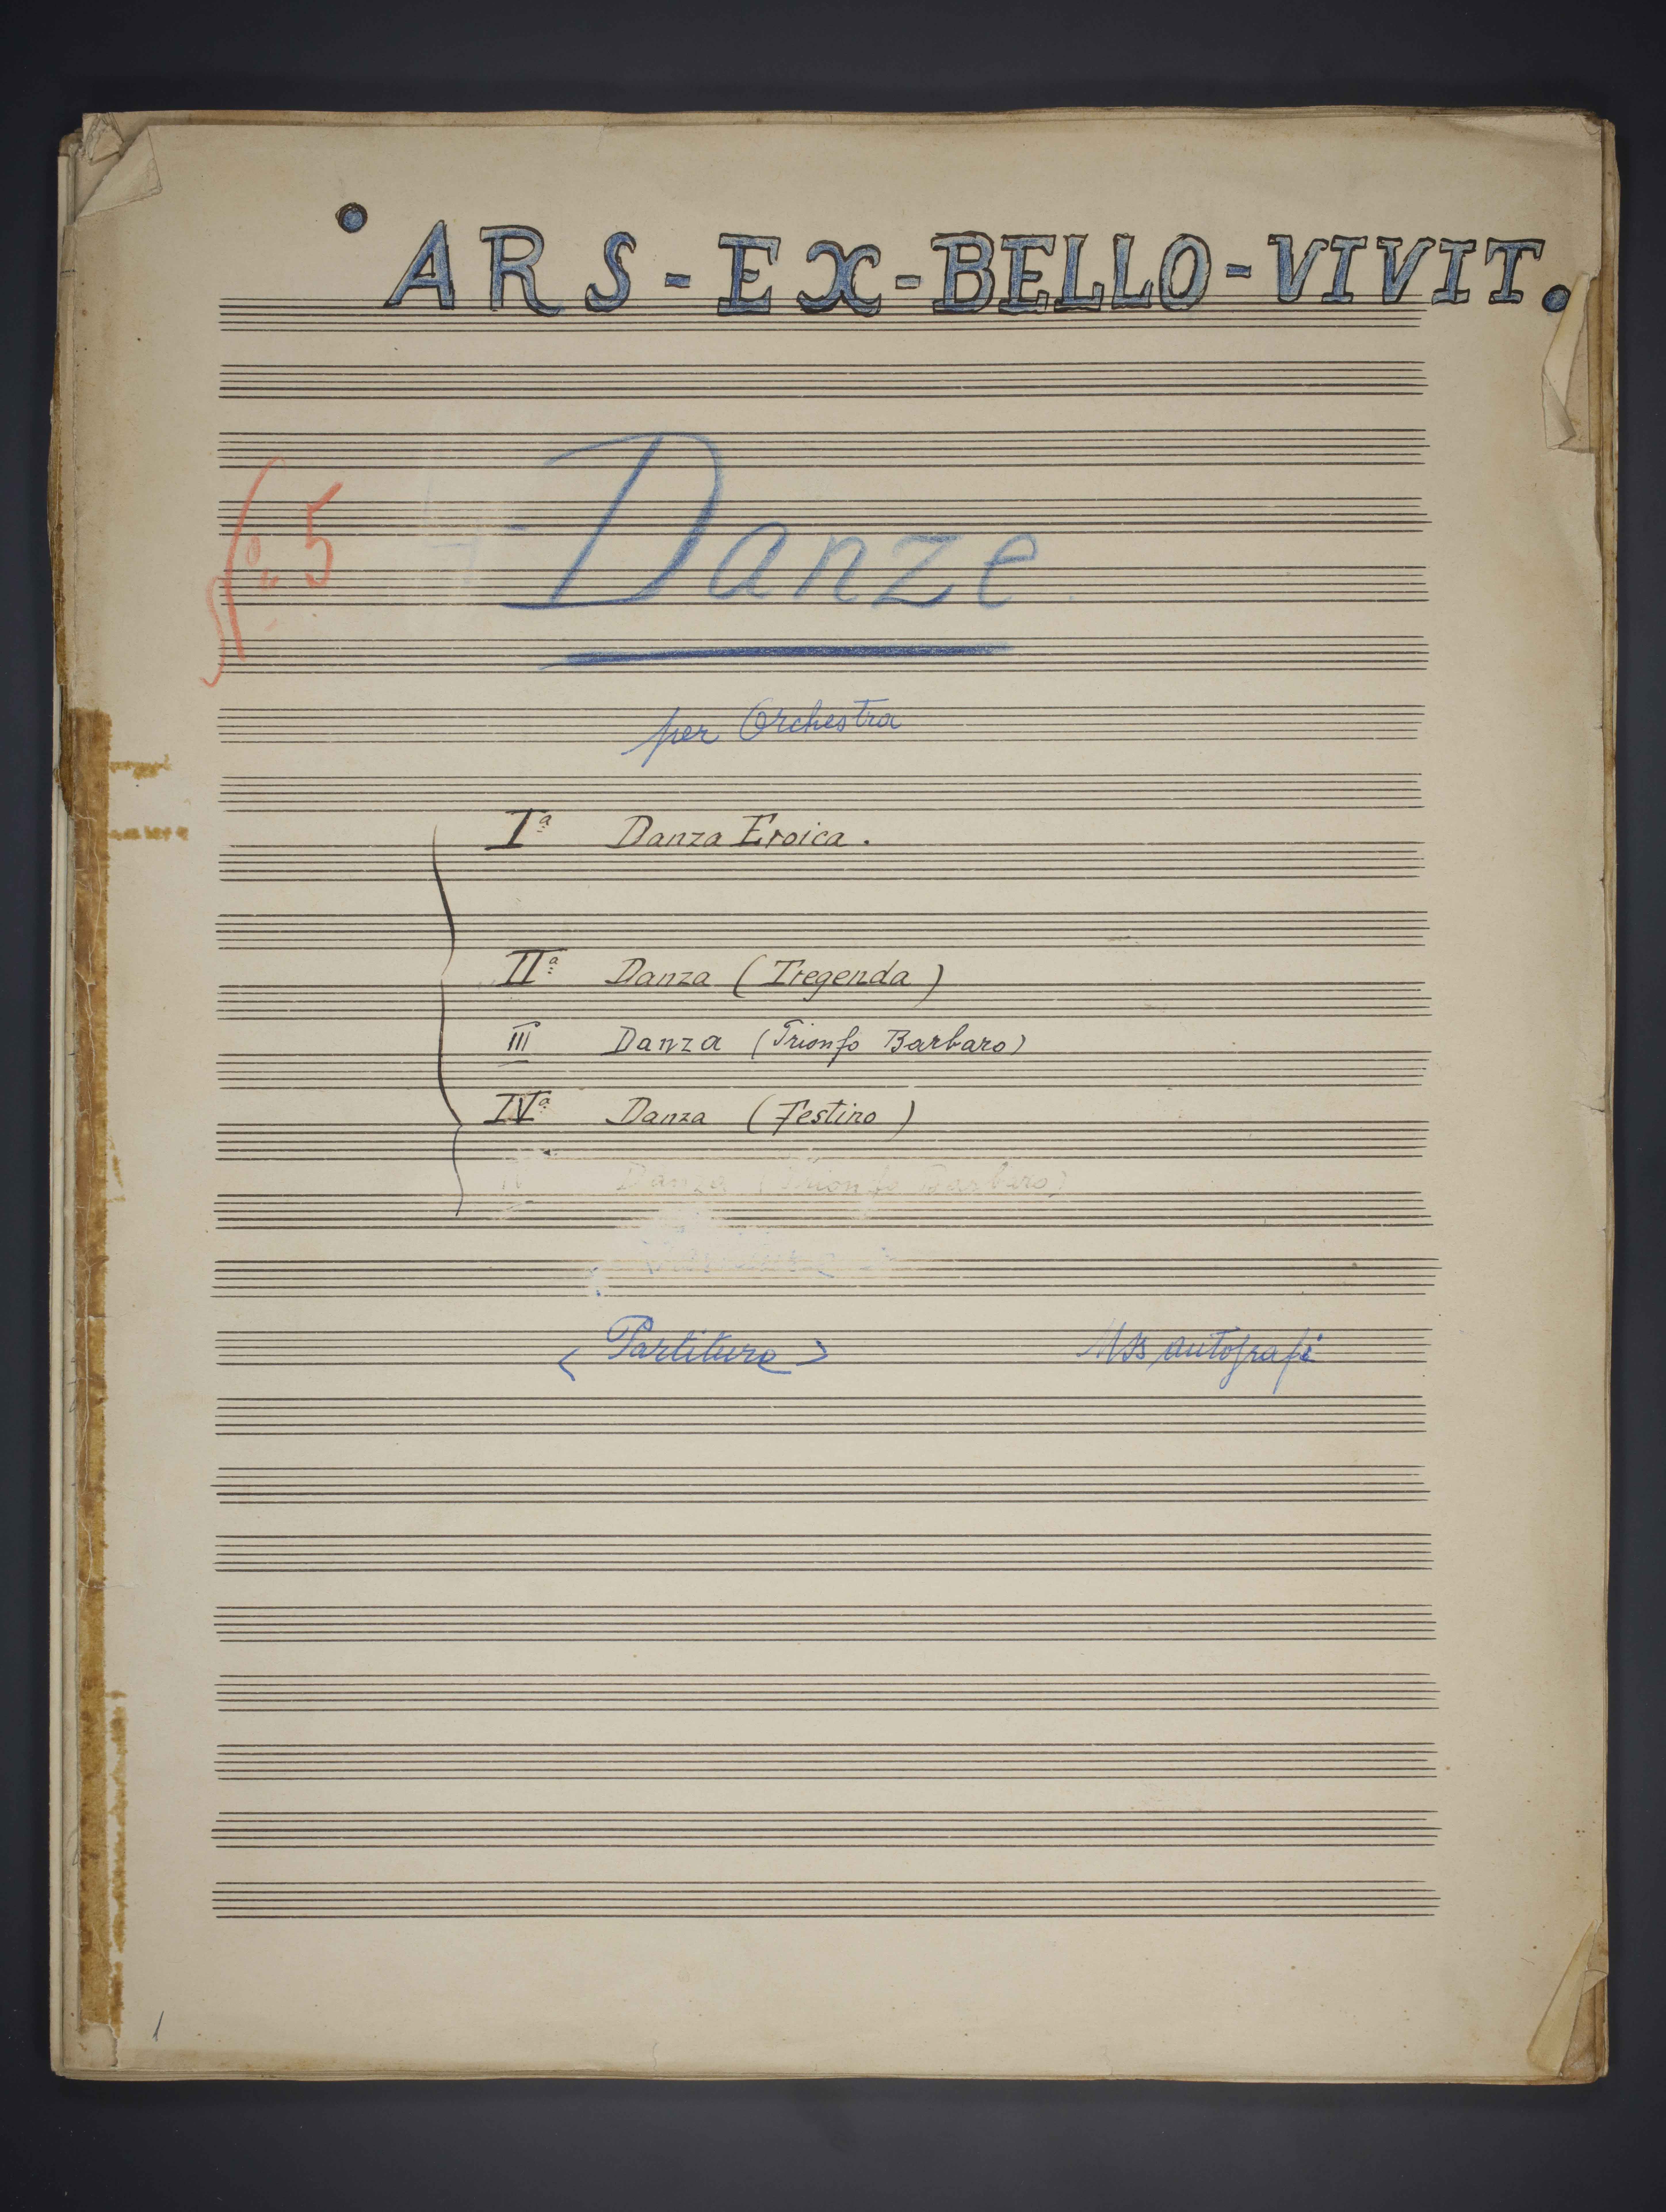 ARS - EX - BELLO - VIVIT.
5
Danze
per Orchestra
Iª Danza Eroica.
IIª Danza (Tregenda)
III Danza (Trionfo Barbaro)
IVª Danza (Festino)
Danza (Trionfo Barbaro)
< Partiture > Mss autografi
1